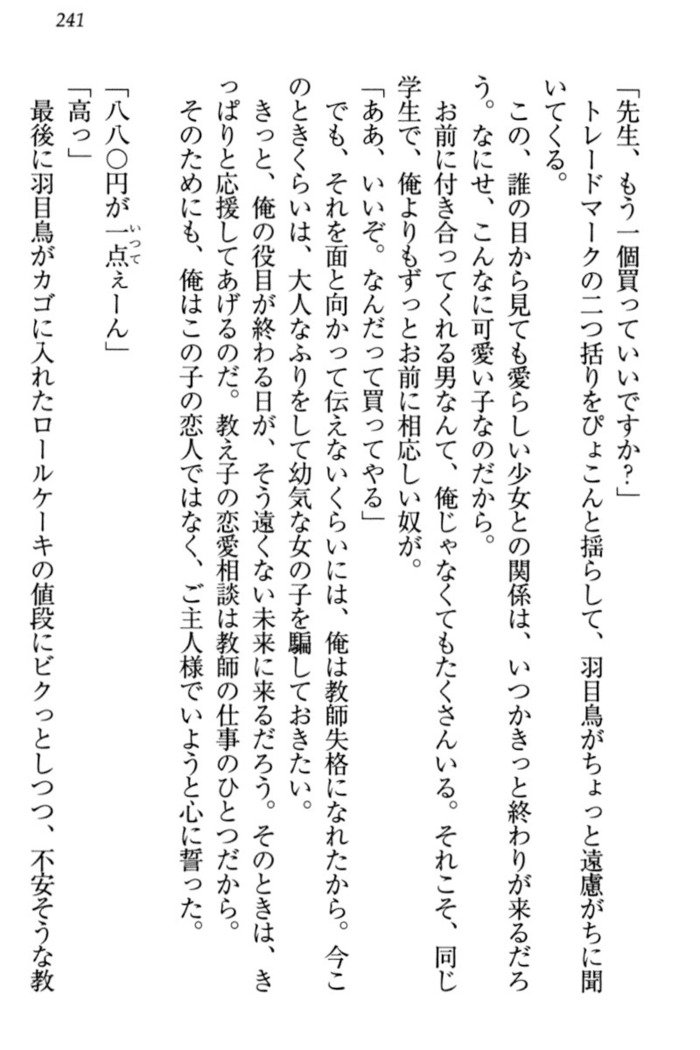 241
「先生、もう一個買っていいですか？」
トレードマークの二つ括りをぴょこんと揺らして、羽目鳥がちょっと遠慮がちに聞
いてくる。
この、誰の目から見ても愛らしい少女との関係は、いつかきっと終わりが来るだろ
う。なにせ、こんなに可愛い子なのだから。
お前に付き合ってくれる男なんて、俺じゃなくてもたくさんいる。それこそ、同じ
学生で、俺よりもずっとお前に相応しい奴が。
「ああ、いいぞ。なんだって買ってやる」
でも、それを面と向かって伝えないくらいには、俺は教師失格になれたから。今こ
のときくらいは、大人なふりをして幼気な女の子を騙しておきたい。
きっと、俺の役目が終わる日が、そう遠くない未来に来るだろう。そのときは、き
っぱりと応援してあげるのだ。教え子の恋愛相談は教師の仕事のひとつだから。
そのためにも、俺はこの子の恋人ではなく、ご主人様でいようと心に誓った。
「八八〇円が一点ぇーん」
いつて
「高っ」
最後に羽目鳥がカゴに入れたロールケーキの値段にビクっとしつつ、不安そうな教